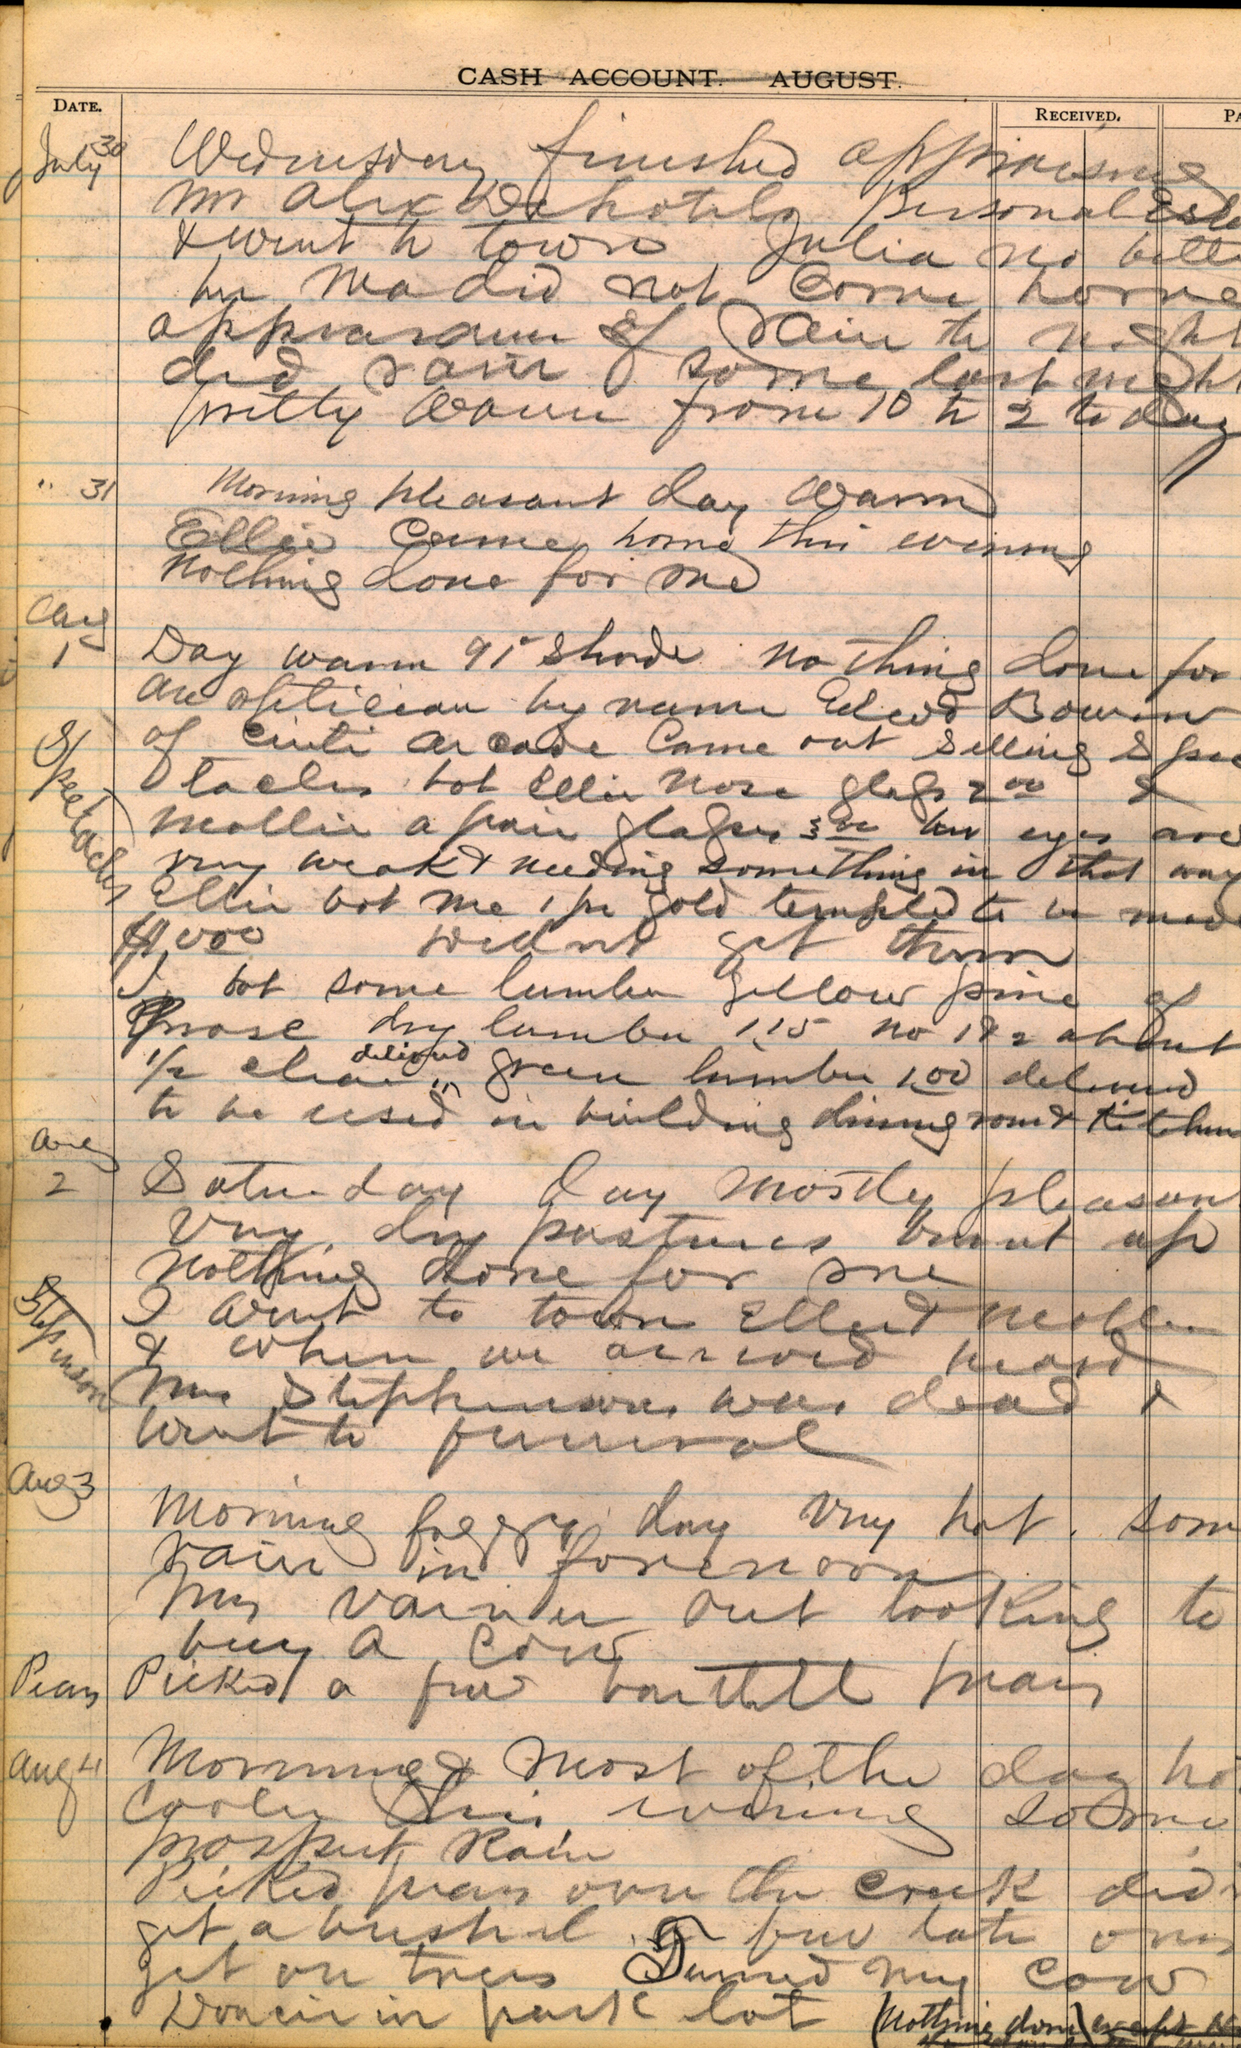 CASH ACCOUNT. AUGUST.
DATE. RECEIVED. PA
July 30 Wednesday finished appraising
Mr Alex Personal Esta
& went to town Julia no bette
her Ma did not Come home
appearance of Rain to night
did rain some last night
pretty warm from 10 to 2 to day
" 31 Morning pleasant day warm
Ellie Came home this evening
Nothing done for me
Aug 1 Day warm 91° Shade Nothing done for
an optician by name Edwd Bowen
of Cinti arcade Came out selling Spec
Spectacles tacles bot Ellie nose glass 2 00 &
Mollie a pair glasses 3 00 her eyes are
very weak & needing something in that way
Ellie bot me 1 pr gold to be made
didnt get them
I bot some lumber yellow pine of
dry lumber 1.15 No 1 & 2 about
1/2 clear delivered " green lumber 1.00 delivered
to be used in building dining room & Kitchen
Aug 2 Saturday day mostly pleasan
Very dry pastures burnt up
Nothing done for me
Stepenson I went to town Ellie & Mollie
& when we arrived heard
Mrs Stephenson was dead &
went to funeral
Aug 3 Morning foggy day very hot. som
rain in forenoon
out looking to
buy a Cow
Pears Picked a few bartlett pears
Aug 4 Morning & most of the day hot
Cooler this evening some
prospect Rain
Picked pears over the creek did
get a bushel a few late ones
yet on trees Turned my cow
in park lot (Nothing done) except